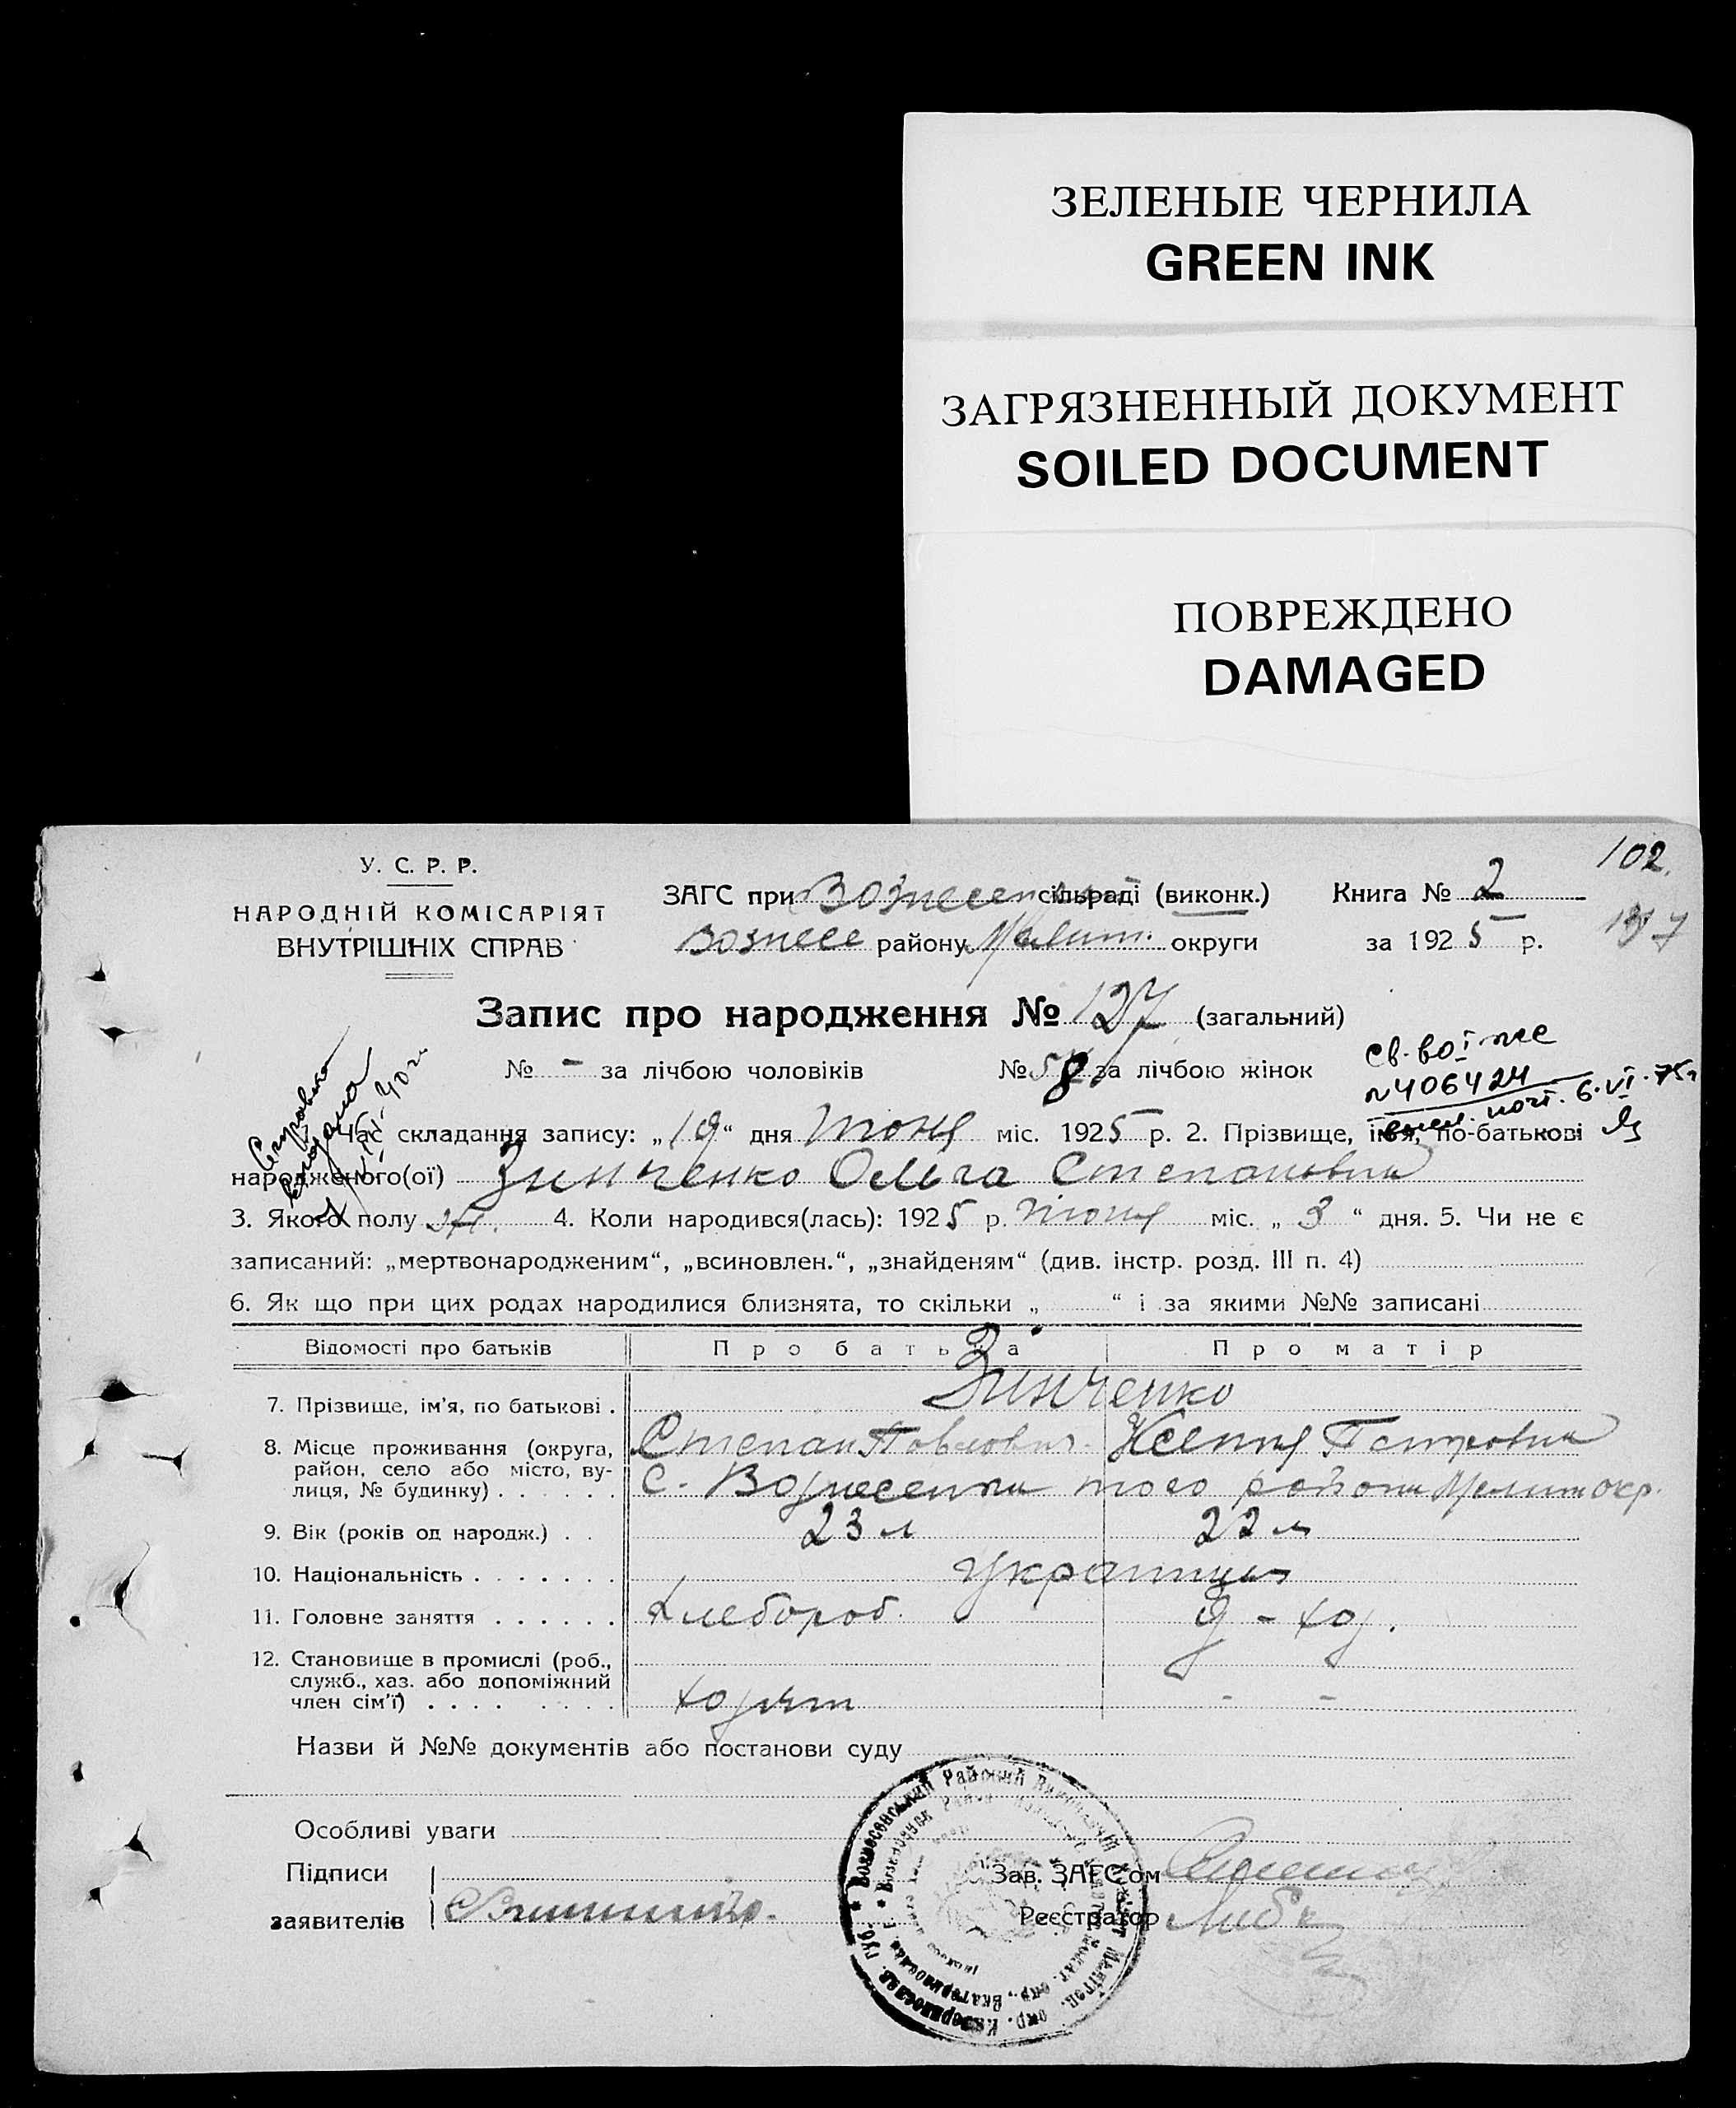 ЗЕЛЕНЫЕ ЧЕРНИЛА
GREEN INK
ЗАГРЯЗНЕННЫЙ ДОКУМЕНТ
SOILED DOCUMENT
ПОВРЕЖДЕНО
DAMAGED
102.
У. С. Р. Р.
НАРОДНІЙ КОМІСАРІЯТ
ВНУТРІШНІХ СПРАВ
ЗАГС при Вознесен сільраді (виконк.) Книга № 2
Вознесе району Мелит. округи за 1925 р.
Запис про народження № 127 (загальний)
№ - за лічбою чоловіків № 58 за лічбою жінок
Св-во І-
№406424
6.VI.75г
Справка
40г
Час складання запису: „19“ дня Июня міс. 1925 р. 2. Прізвище, імя, по-батькові
народженого(ої) Зинченко Ольга Степановна
3. Якого полу ж. 4. Коли народився(лась): 1925 р. Июня міс. „3“ дня. 5. Чи не є
записаний: „мертвонародженим“, „всиновлен.“, „знайденям“ (див. інстр. розд. III п. 4)
6. Як що при цих родах народилися близнята, то скільки „ “ і за якими №№ записані
Відомості про батьків Про батька Про матір
7. Прізвище, ім'я, по батькові . Зинченко
Степан Павлович. Ксения Петровна
8. Місце проживання (округа, район, село або місто, вулиця, № будинку) . . . . . .
С. Вознесенка того района Мелит окр.
9. Вік (років од народж.) . . 23 л 22 л
10. Національність . . . . . . . украинцы
11. Головне заняття . . . . . . Хлебороб. д-хоз.
12. Становище в промислі (роб., служб., хаз. або допоміжний член сім'ї) . . . . . . . .
хозяин - -
Назви й №№ документів або постанови суду
Особливі уваги
Підписи
заявителів
Зав. ЗАГС'ом
Реєстратор
Вознесенський Районий Виконавчий Комітет Меліт. окр. Катеринослав. губ.